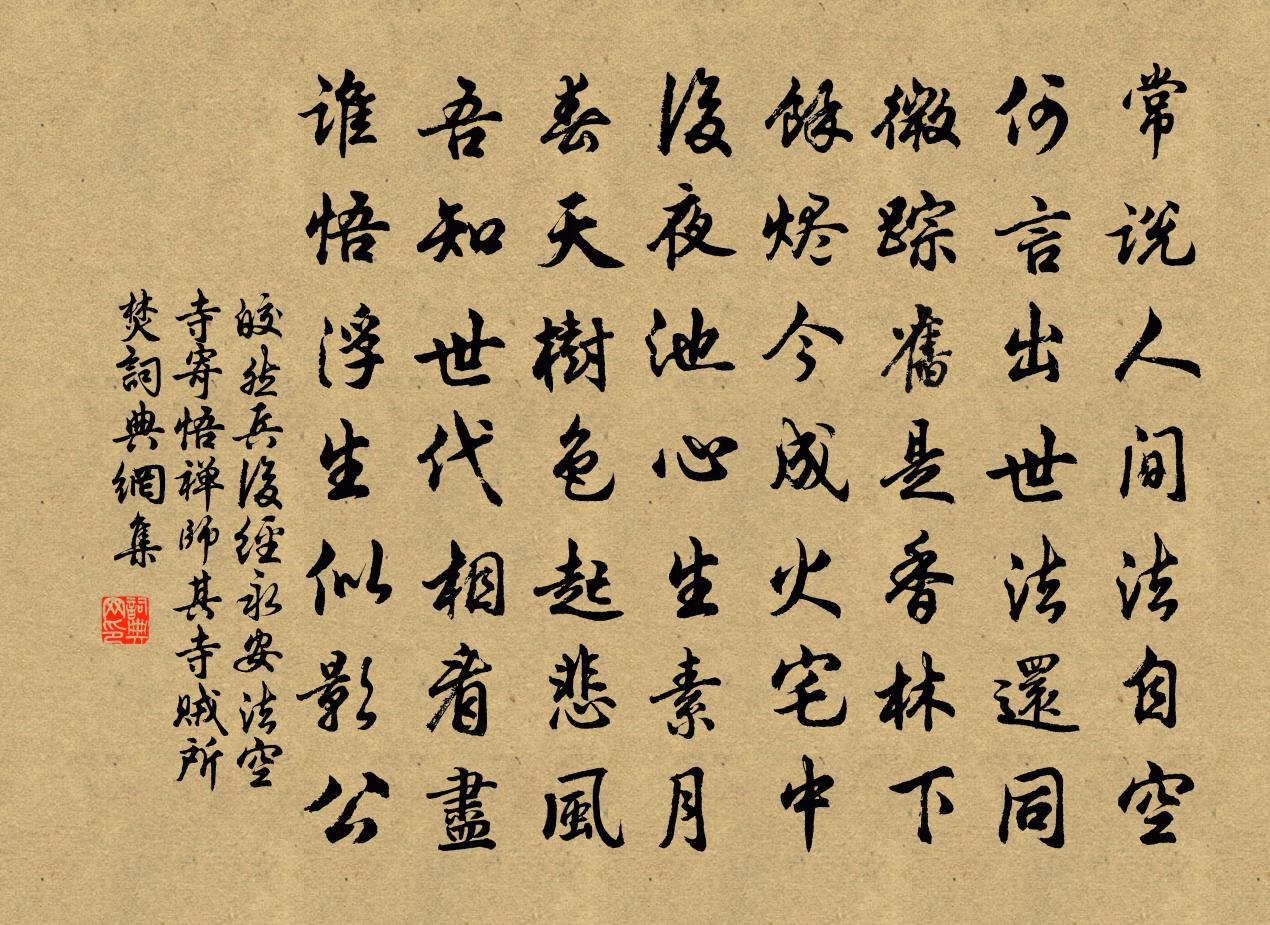 常说人间法自空
何言出世法還同
微踪舊是香林下
餘烬今成火宅中
後夜池心生素月
春天樹色起悲風
吾知世代相看盡
谁悟浮生似影公
皎然兵後經永安法空
寺寄悟禅師其寺贼所
焚詞典網集
詞典
网印